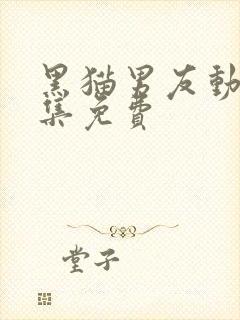 黑猫男友動
集免費
堂子